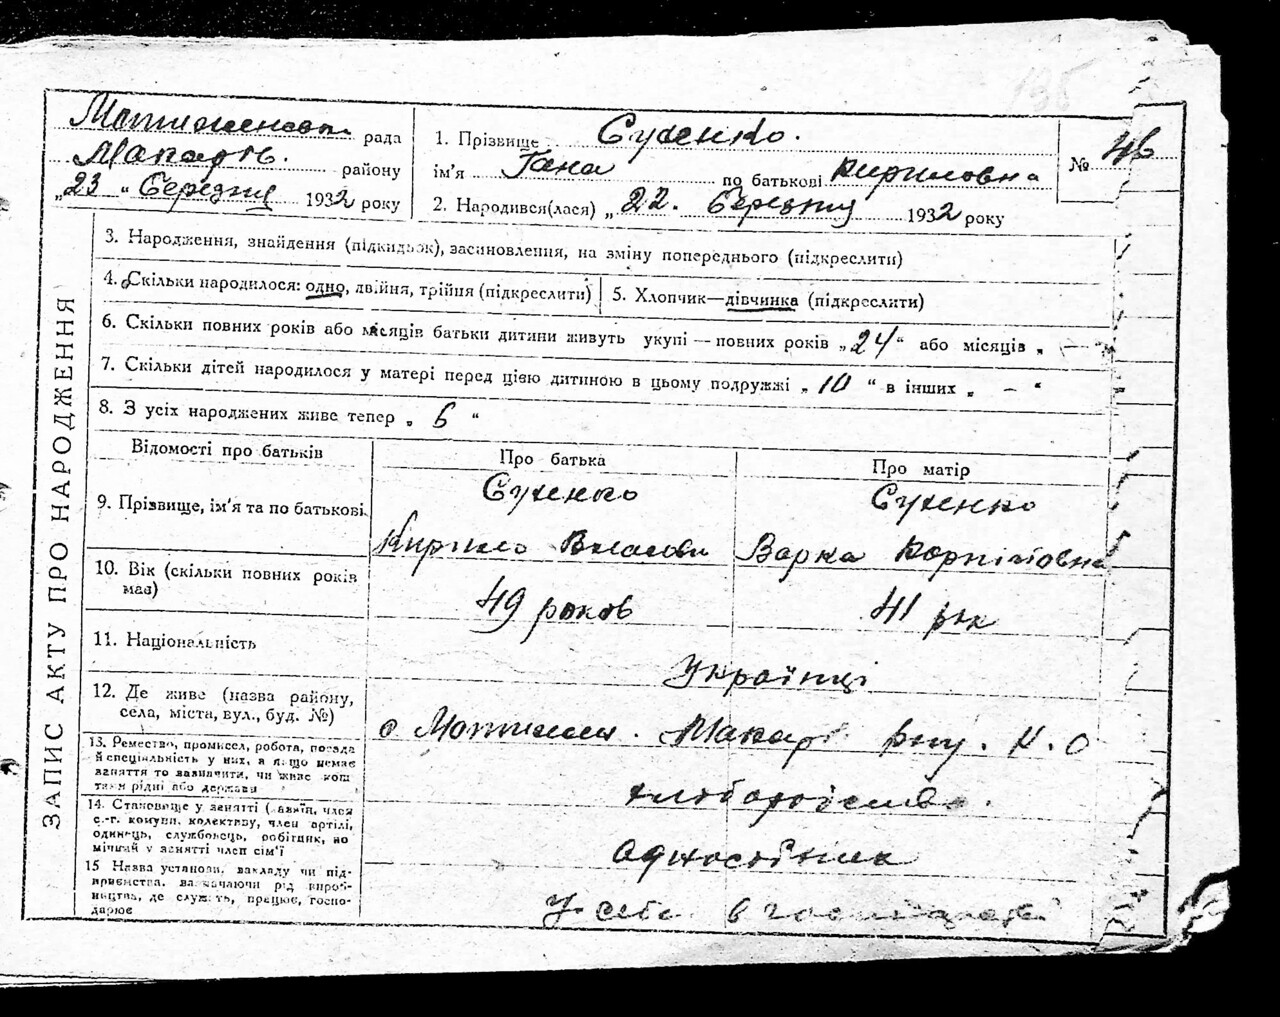 135
Мотиженська рада
Макарів. району
„23 “ Березня 1932 року
1. Прізвище Сухенко.
ім'я Гана по батькові Кириловна
2. Народився(лася) „ 22. Березня 1932 року
№ 46
ЗАПИС АКТУ ПРО НАРОДЖЕННЯ
3. Народження, знайдення (підкидьок), засиновлення, на зміну попереднього (підкреслити)
4. Скільки народилося: одно, двійня, трійня (підкреслити)
5. Хлопчик—дівчинка (підкреслити)
6. Скільки повних років або місяців батьки дитини живуть укупі — повних років „ 24 “ або місяців „ —
7. Скільки дітей народилося у матері перед цією дитиною в цьому подружжі „ 10 “ в інших „ — “
8. З усіх народжених живе тепер „ 6 “
Відомості про батьків
Про батька
Про матір
9. Прізвище, ім'я та по батькові
Сухенко
Кирило Власови
Сухенко
Варка Корніївовна
10. Вік (скільки повних років
має)
49 років
41 рік
11. Національність
Українці
12. Де живе (назва району,
села, міста, вул., буд. №)
с Мотижин. Макар. рну. К. О
13. Ремество, промисел, робота, посада
й спеціяльність у них, а якщо немає
заняття то зазначити, чи живе кош
там рідні або держави
хлоборобство.
14. Становище у занятті (хазяїн, член
с.-г. комуни, колективу, член артілі,
одинець, службовець, робітник, но
мічний у занятті член сім'ї
Одноосібник
15 Назва установи, закладу чи під-
приємства, зазначаючи рід вироб-
ництва, де служить, працює, госпо-
дарює
У себе в господарстві